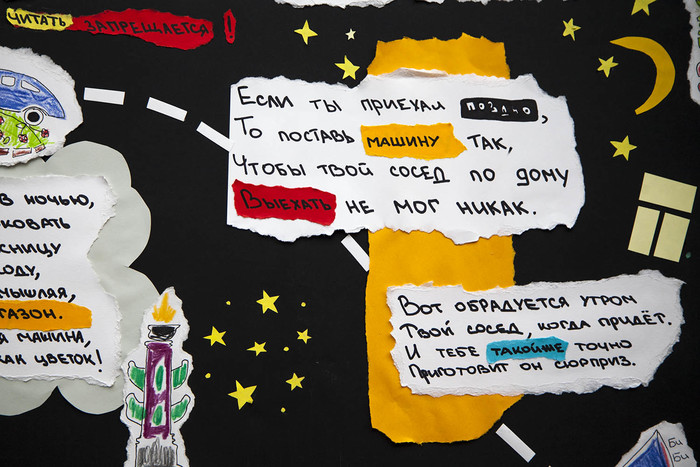 ЧИТАТЬ ЗАПРЕЩАЕТСЯ!
Если ты приехал поздно,
То поставь машину так,
Чтобы твой сосед по дому
Выехать не мог никак.
в ночью,
ковать
сницу
оду,
мышляя,
газон.
а машини,
как цветок!
Вот обрадуется утром
Твой сосед, когда придёт.
И тебе такойже точно
Приготовит он сюрприз.
Би
Би